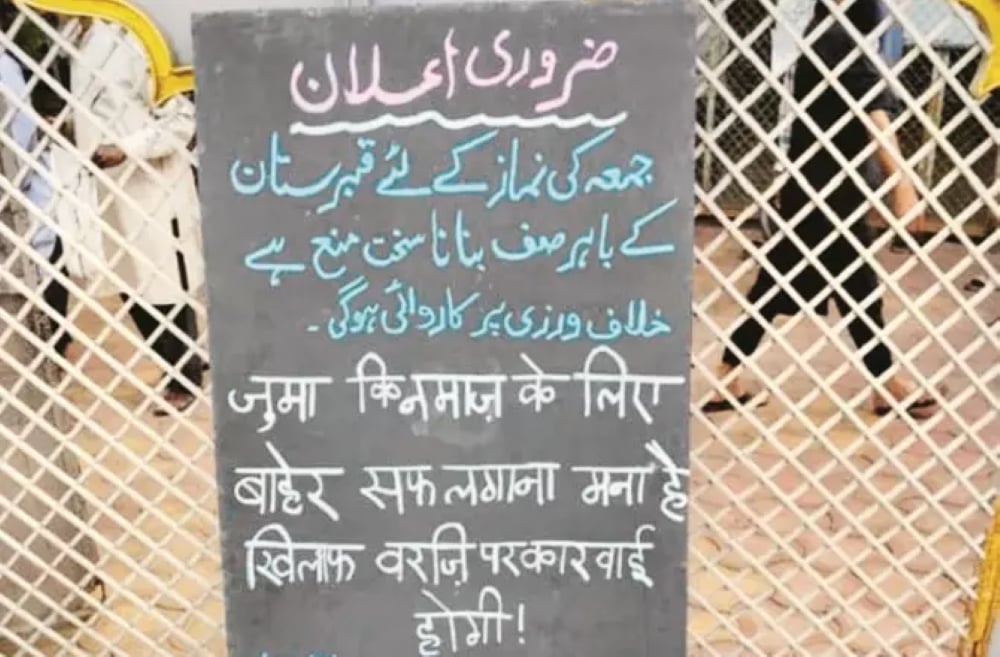 ضروری اعلان
جمعہ کی نماز کے لئے قبرستان
کے باہر صف بنانا سخت منع ہے
خلاف ورزی پر کاروائی ہوگی۔
जुमा कि नमाज़ के लिए
बाहेर सफ लगाना मना है
खिलाफ वरज़ि पर कारवाई
होगी!